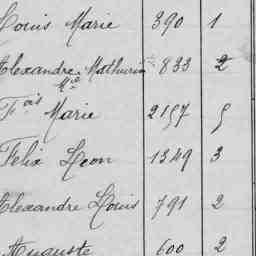 Louis Marie 390 1
Alexandre Mathurin 833 2
Fois Mie Marie 2157 5
Felix Leon 1349 3
Alexandre Louis 791 2
Auguste 600 2